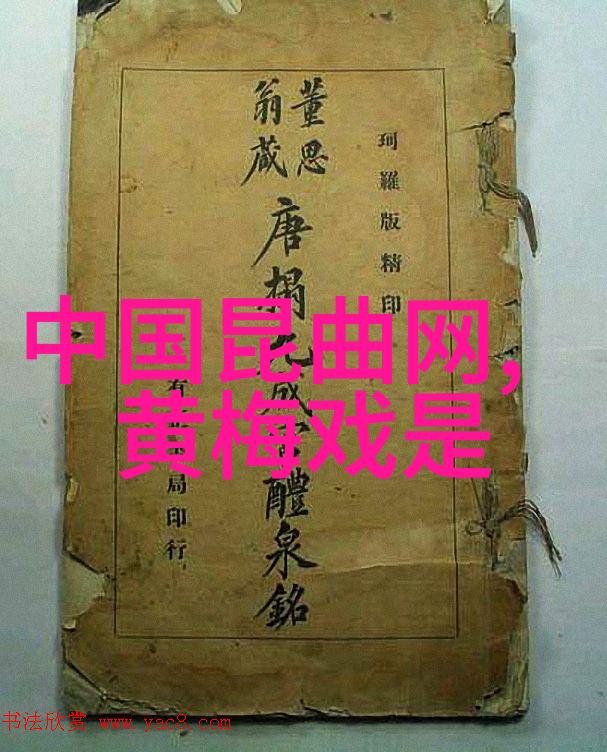 珂羅版精印
董思
翁蔵
唐搨九成宮醴泉銘
有局印行
中国昆曲网,
黄梅戏是
书法欣赏 www.yac8.com